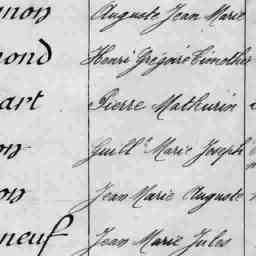 non Auguste Jean Marie
mond Henri Grégoire Timothée
art Pierre Mathurin
on Guill^e Marie Joseph
on Jean Marie Auguste
neuf Jean Marie Jules